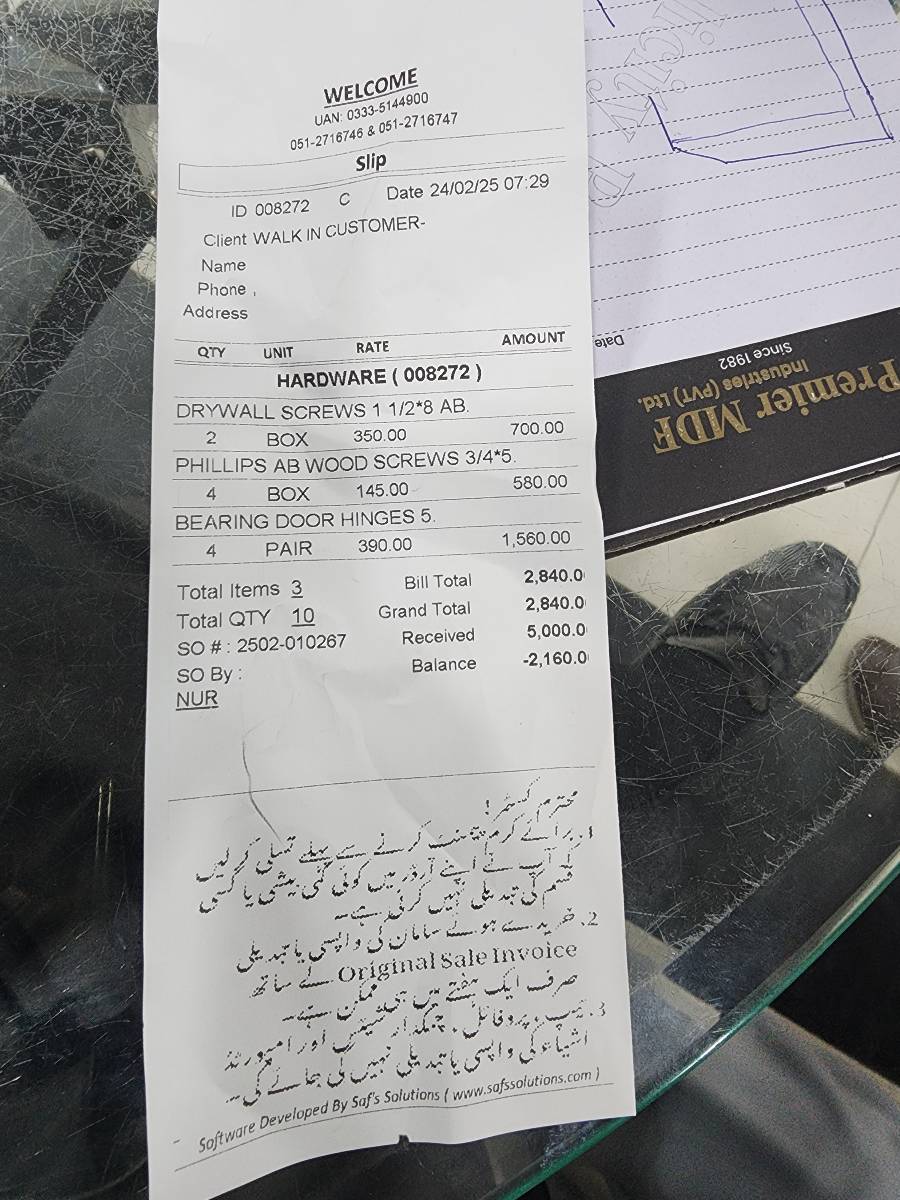 WELCOME
UAN: 0333-5144900
051-2716746 & 051-2716747
Slip
ID 008272 C Date 24/02/25 07:29
Client WALK IN CUSTOMER-
Name
Phone ,
Address
QTY UNIT RATE AMOUNT
HARDWARE ( 008272 )
DRYWALL SCREWS 1 1/2*8 AB.
2 BOX 350.00 700.00
PHILLIPS AB WOOD SCREWS 3/4*5.
4 BOX 145.00 580.00
BEARING DOOR HINGES 5.
4 PAIR 390.00 1,560.00
Total Items 3 Bill Total 2,840.0
Total QTY 10 Grand Total 2,840.0
SO # : 2502-010267 Received 5,000.0
SO By : Balance -2,160.0
NUR
محترم کسٹمر!
1. برائے کرم پیمنٹ کرنے سے پہلے تسلی کر لیں
کہ آپ نے اپنے آرڈر میں کوئی کمی بیشی یا کسی
قسم کی تبدیلی نہیں کرنی ہے۔
2. خریدے ہوئے سامان کی واپسی یا تبدیلی
Original Sale Invoice کے ساتھ
صرف ایک ہفتے میں ہی ممکن ہے۔
3. ٹیپ، پروفائل، چمکدار شیٹس اور امپورٹڈ
اشیاء کی واپسی یا تبدیلی نہیں کی جائے گی۔
Software Developed By Saf's Solutions ( www.safssolutions.com )
Date
Premier MDF
Industries (PVT) Ltd.
Since 1982